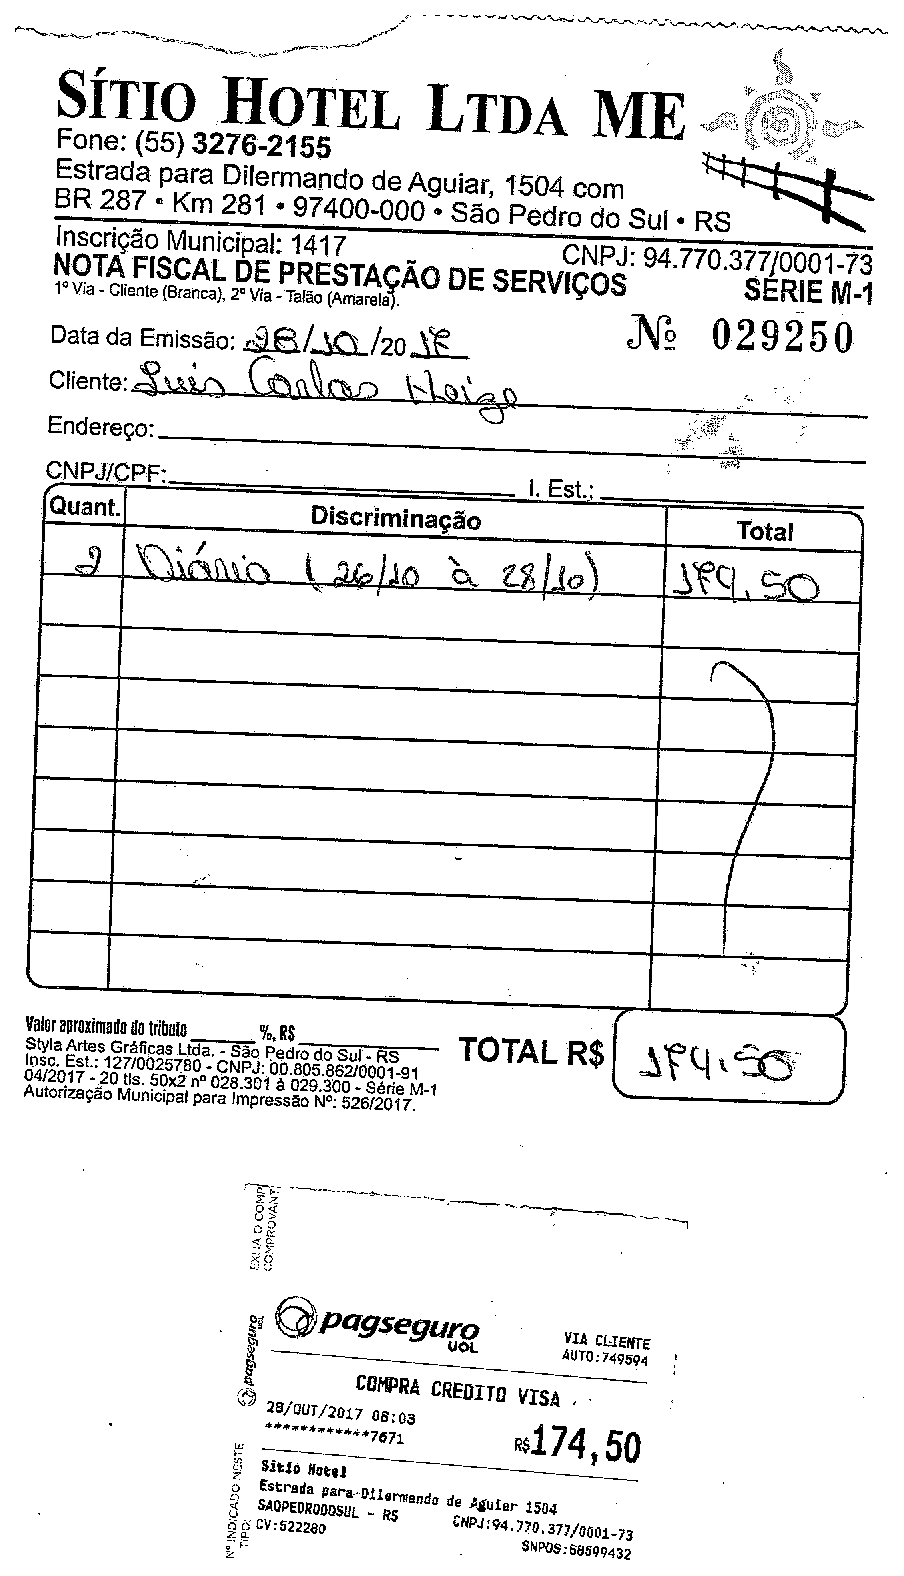 SÍTIO HOTEL LTDA ME
Fone: (55) 3276-2155
Estrada para Dilermando de Aguiar, 1504 com
BR 287 • Km 281 • 97400-000 • São Pedro do Sul • RS
Inscrição Municipal: 1417 CNPJ: 94.770.377/0001-73
NOTA FISCAL DE PRESTAÇÃO DE SERVIÇOS SÉRIE M-1
1ª Via - Cliente (Branca), 2ª Via - Talão (Amarela).
Data da Emissão: 28/10/2017 Nº 029250
Cliente: Luis Carlos Heize
Endereço:
CNPJ/CPF: I. Est.:
Quant. Discriminação Total
2 Diária (26/10 à 28/10) 174,50
Valor aproximado do tributo %, R$
Styla Artes Gráficas Ltda. - São Pedro do Sul - RS
Insc. Est.: 127/0025780 - CNPJ: 00.805.862/0001-91
04/2017 - 20 tls. 50x2 nº 028.301 à 029.300 - Série M-1
Autorização Municipal para Impressão Nº: 526/2017.
TOTAL R$ 174,50
pagseguro
UOL
VIA CLIENTE
AUTO:749594
COMPRA CREDITO VISA
28/OUT/2017 08:03
************7671 R$174,50
Sitio Hotel
Estrada para Dilermando de Aguiar 1504
SAOPEDRODOSUL - RS CNPJ:94.770.377/0001-73
CV:522280 SNPOS:68599432
pagseguro
UOL
Nº INDICADO NESTE
TIPO: